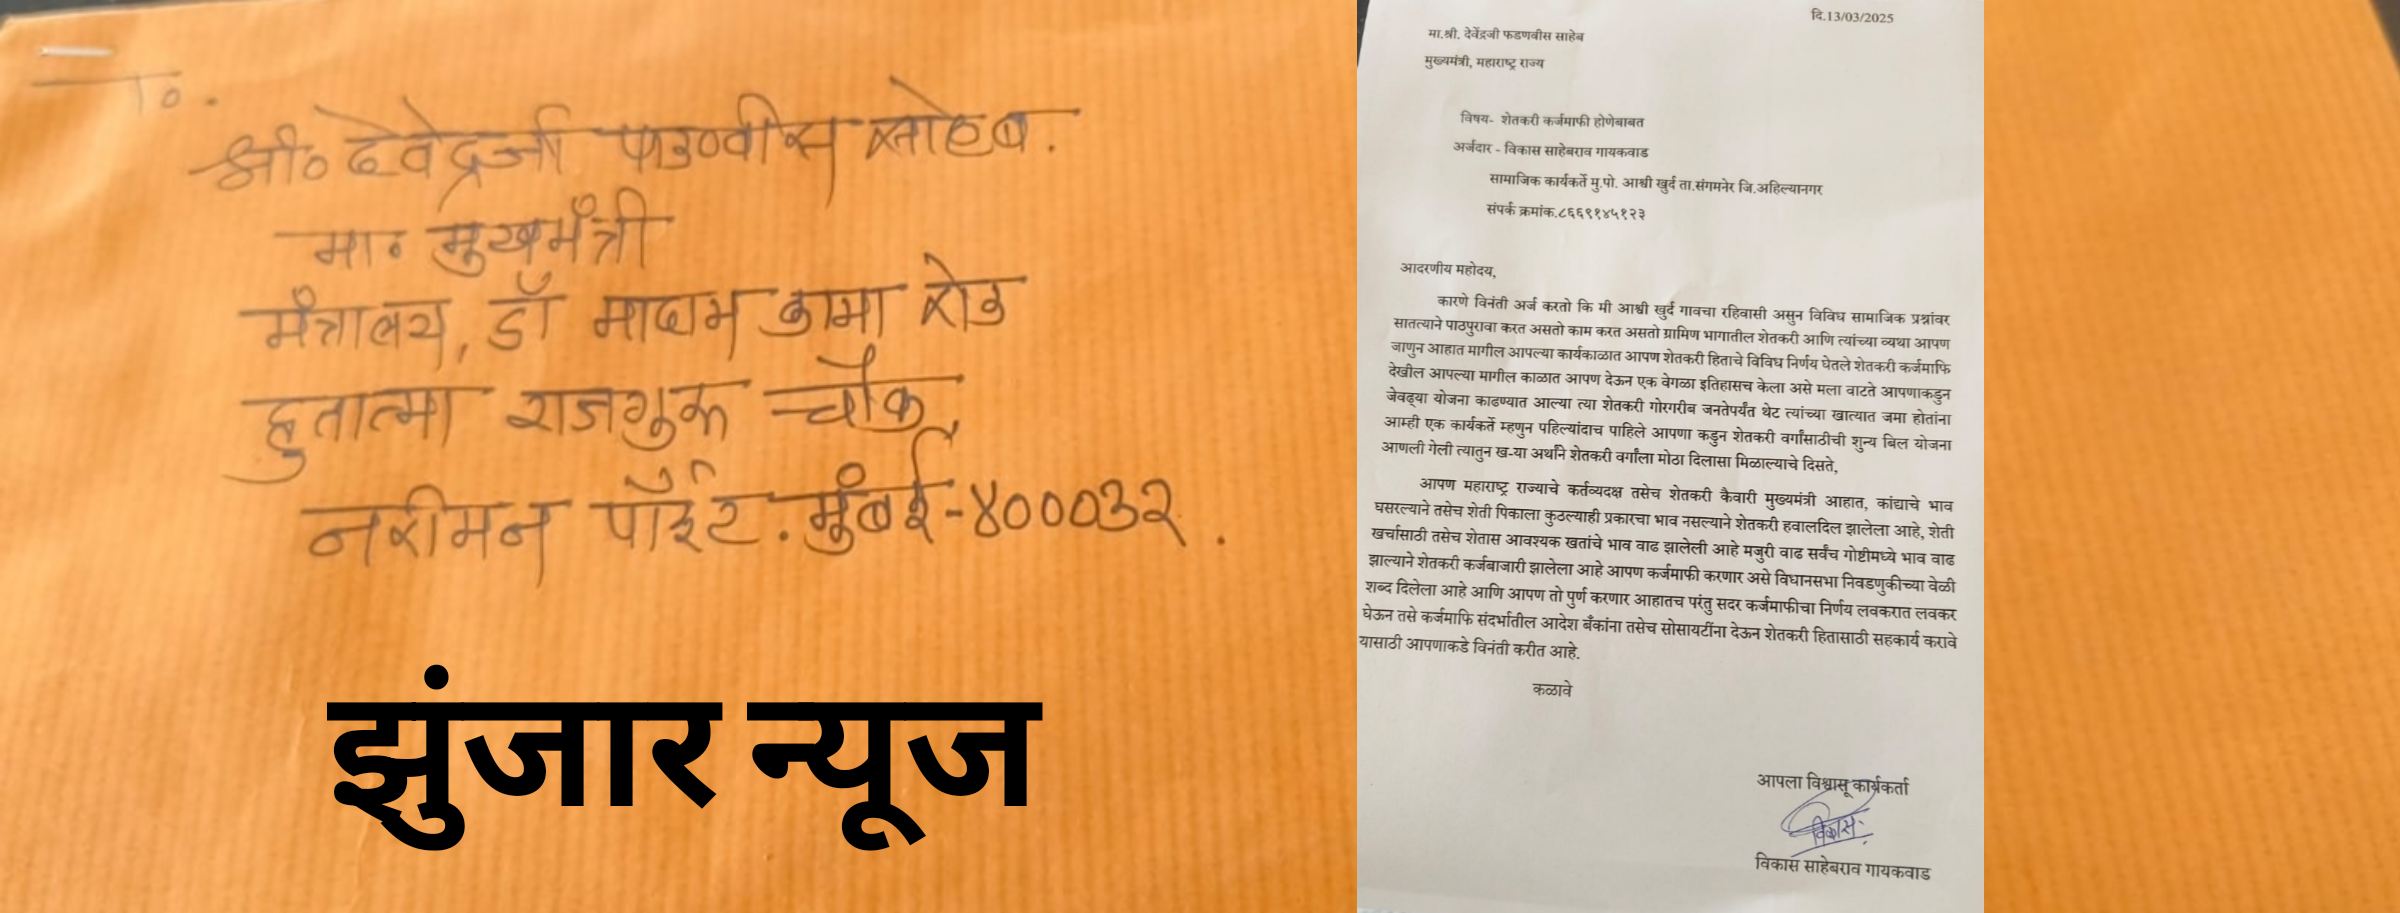 To.
श्री० देवेद्रजी फडणवीस साहेब.
मा. मुख्यमंत्री
मंत्रालय, डॉ मादाम कामा रोड
हुतात्मा राजगुरू चौक,
नरीमन पॉईंट. मुंबई-४०००३२.
झुंजार न्यूज
दि.13/03/2025
मा.श्री. देवेंद्रजी फडणवीस साहेब
मुख्यमंत्री, महाराष्ट्र राज्य
विषय- शेतकरी कर्जमाफी होणेबाबत
अर्जदार - विकास साहेबराव गायकवाड
सामाजिक कार्यकर्ते मु.पो. आश्वी खुर्द ता.संगमनेर जि.अहिल्यानगर
संपर्क क्रमांक.८६६९१४५१२३
आदरणीय महोदय,
कारणे विनंती अर्ज करतो कि मी आश्वी खुर्द गावचा रहिवासी असुन विविध सामाजिक प्रश्नांवर
सातत्याने पाठपुरावा करत असतो काम करत असतो ग्रामिण भागातील शेतकरी आणि त्यांच्या व्यथा आपण
जाणुन आहात मागील आपल्या कार्यकाळात आपण शेतकरी हिताचे विविध निर्णय घेतले शेतकरी कर्जमाफि
देखील आपल्या मागील काळात आपण देऊन एक वेगळा इतिहासच केला असे मला वाटते आपणाकडुन
जेवढ्या योजना काढण्यात आल्या त्या शेतकरी गोरगरीब जनतेपर्यंत थेट त्यांच्या खात्यात जमा होतांना
आम्ही एक कार्यकर्ते म्हणुन पहिल्यांदाच पाहिले आपणा कडुन शेतकरी वर्गांसाठीची शुन्य बिल योजना
आणली गेली त्यातुन ख-या अर्थाने शेतकरी वर्गाला मोठा दिलासा मिळाल्याचे दिसते,
आपण महाराष्ट्र राज्याचे कर्तव्यदक्ष तसेच शेतकरी कैवारी मुख्यमंत्री आहात, कांद्याचे भाव
घसरल्याने तसेच शेती पिकाला कुठल्याही प्रकारचा भाव नसल्याने शेतकरी हवालदिल झालेला आहे, शेती
खर्चासाठी तसेच शेतास आवश्यक खतांचे भाव वाढ झालेली आहे मजुरी वाढ सर्वच गोष्टीमध्ये भाव वाढ
झाल्याने शेतकरी कर्जबाजारी झालेला आहे आपण कर्जमाफी करणार असे विधानसभा निवडणुकीच्या वेळी
शब्द दिलेला आहे आणि आपण तो पुर्ण करणार आहातच परंतु सदर कर्जमाफीचा निर्णय लवकरात लवकर
घेऊन तसे कर्जमाफि संदर्भातील आदेश बँकांना तसेच सोसायटींना देऊन शेतकरी हितासाठी सहकार्य करावे
यासाठी आपणाकडे विनंती करीत आहे.
कळावे
आपला विश्वासू कार्यकर्ता
विकास
विकास साहेबराव गायकवाड